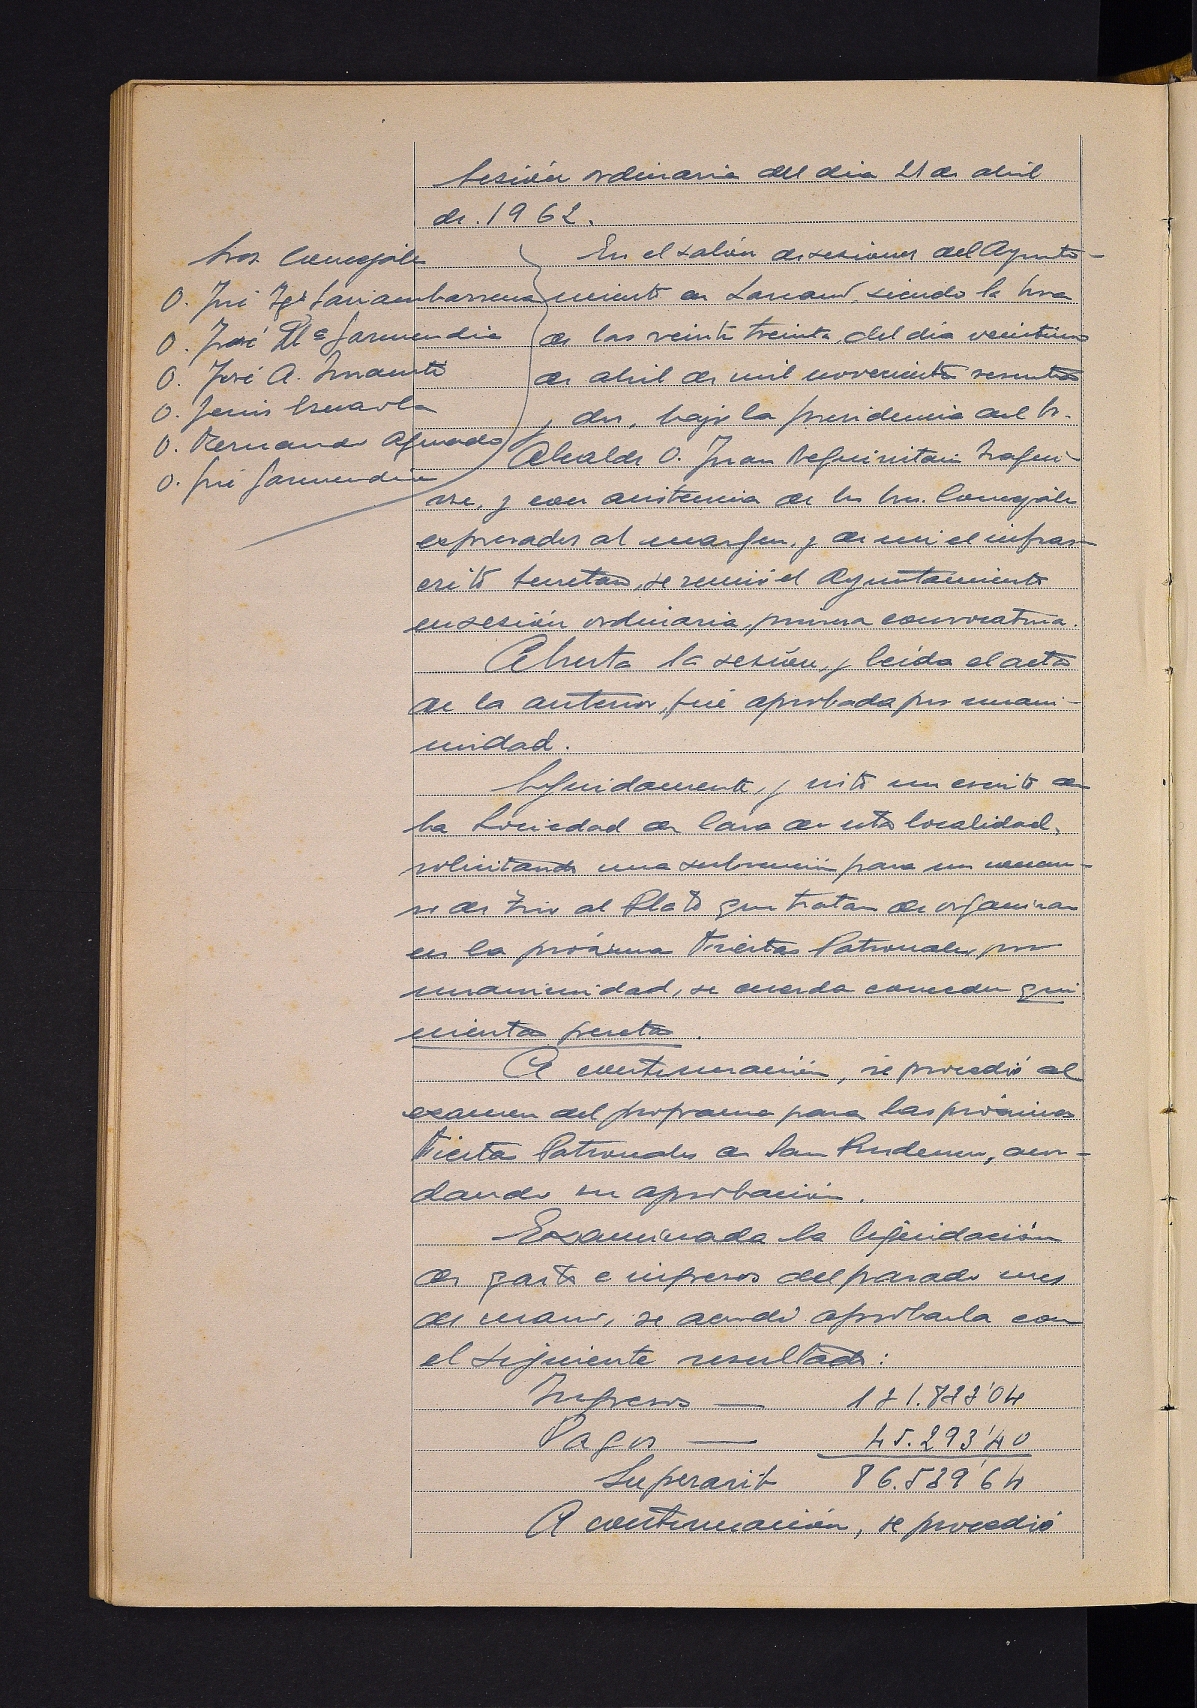 Sesión ordinaria del dia 21 de abril
de 1962.
Sres Concejales
D. José Igº Sansiambarrena
D. José Mª Garmendia
D. José A. Insausti
D. Jesús Urraola
D. Fernando Aguado
D. José Garmendia
En el salón de sesiones del Ayunta-
miento de Lazcano, siendo la hora
de las veinte treinta, del dia veintiuno
de abril de mil novecientos sesenta
y dos, bajo la presidencia del Sr.
Alcalde D. Juan
y con asistencia de los Sres. Concejales
expresados al margen, y de mi el infras-
crito Secretario, se reunió el Ayuntamiento
en sesión ordinaria, primera convocatoria.
Abierta la sesión, y leida el acta
de la anterior, fué aprobada por unani-
midad.
Seguidamente, y visto un escrito de
la Sociedad de Caza de esta localidad,
solicitando una subvención para un concur-
so de Tiro al Plato que tratan de organizar
en la próxima Fiestas Patronales, por
unanimidad, se acuerda conceder qui
nientas pesetas.
A continuación, se procedió al
examen del programa para las próximas
Fiestas Patronales de San Prudencio, acor-
dando su aprobación.
Examinada la liquidación
de gastos e ingresos del pasado mes
de marzo, se acordó aprobarla con
el siguiente resultado:
Ingresos — 131.833'04
Pagos — 45.293'40
Superavit 86.539'64
A continuación, se procedió